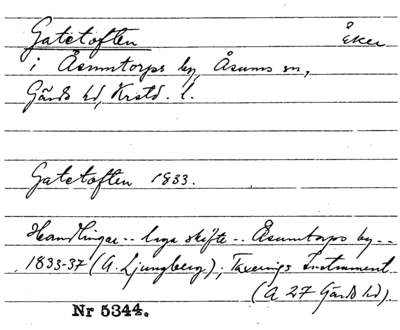 Gatetoften åker
i Åsumtorps by, Åsums sn,
Gärds hd, Krstd. l.
Gatetoften 1833.
Handlingar .. laga skifte .. Åsumtorps by ..
1833-37 (A. Ljungberg); Taxerings Instrument
(A 27 Gärds hd).
Nr 5344.